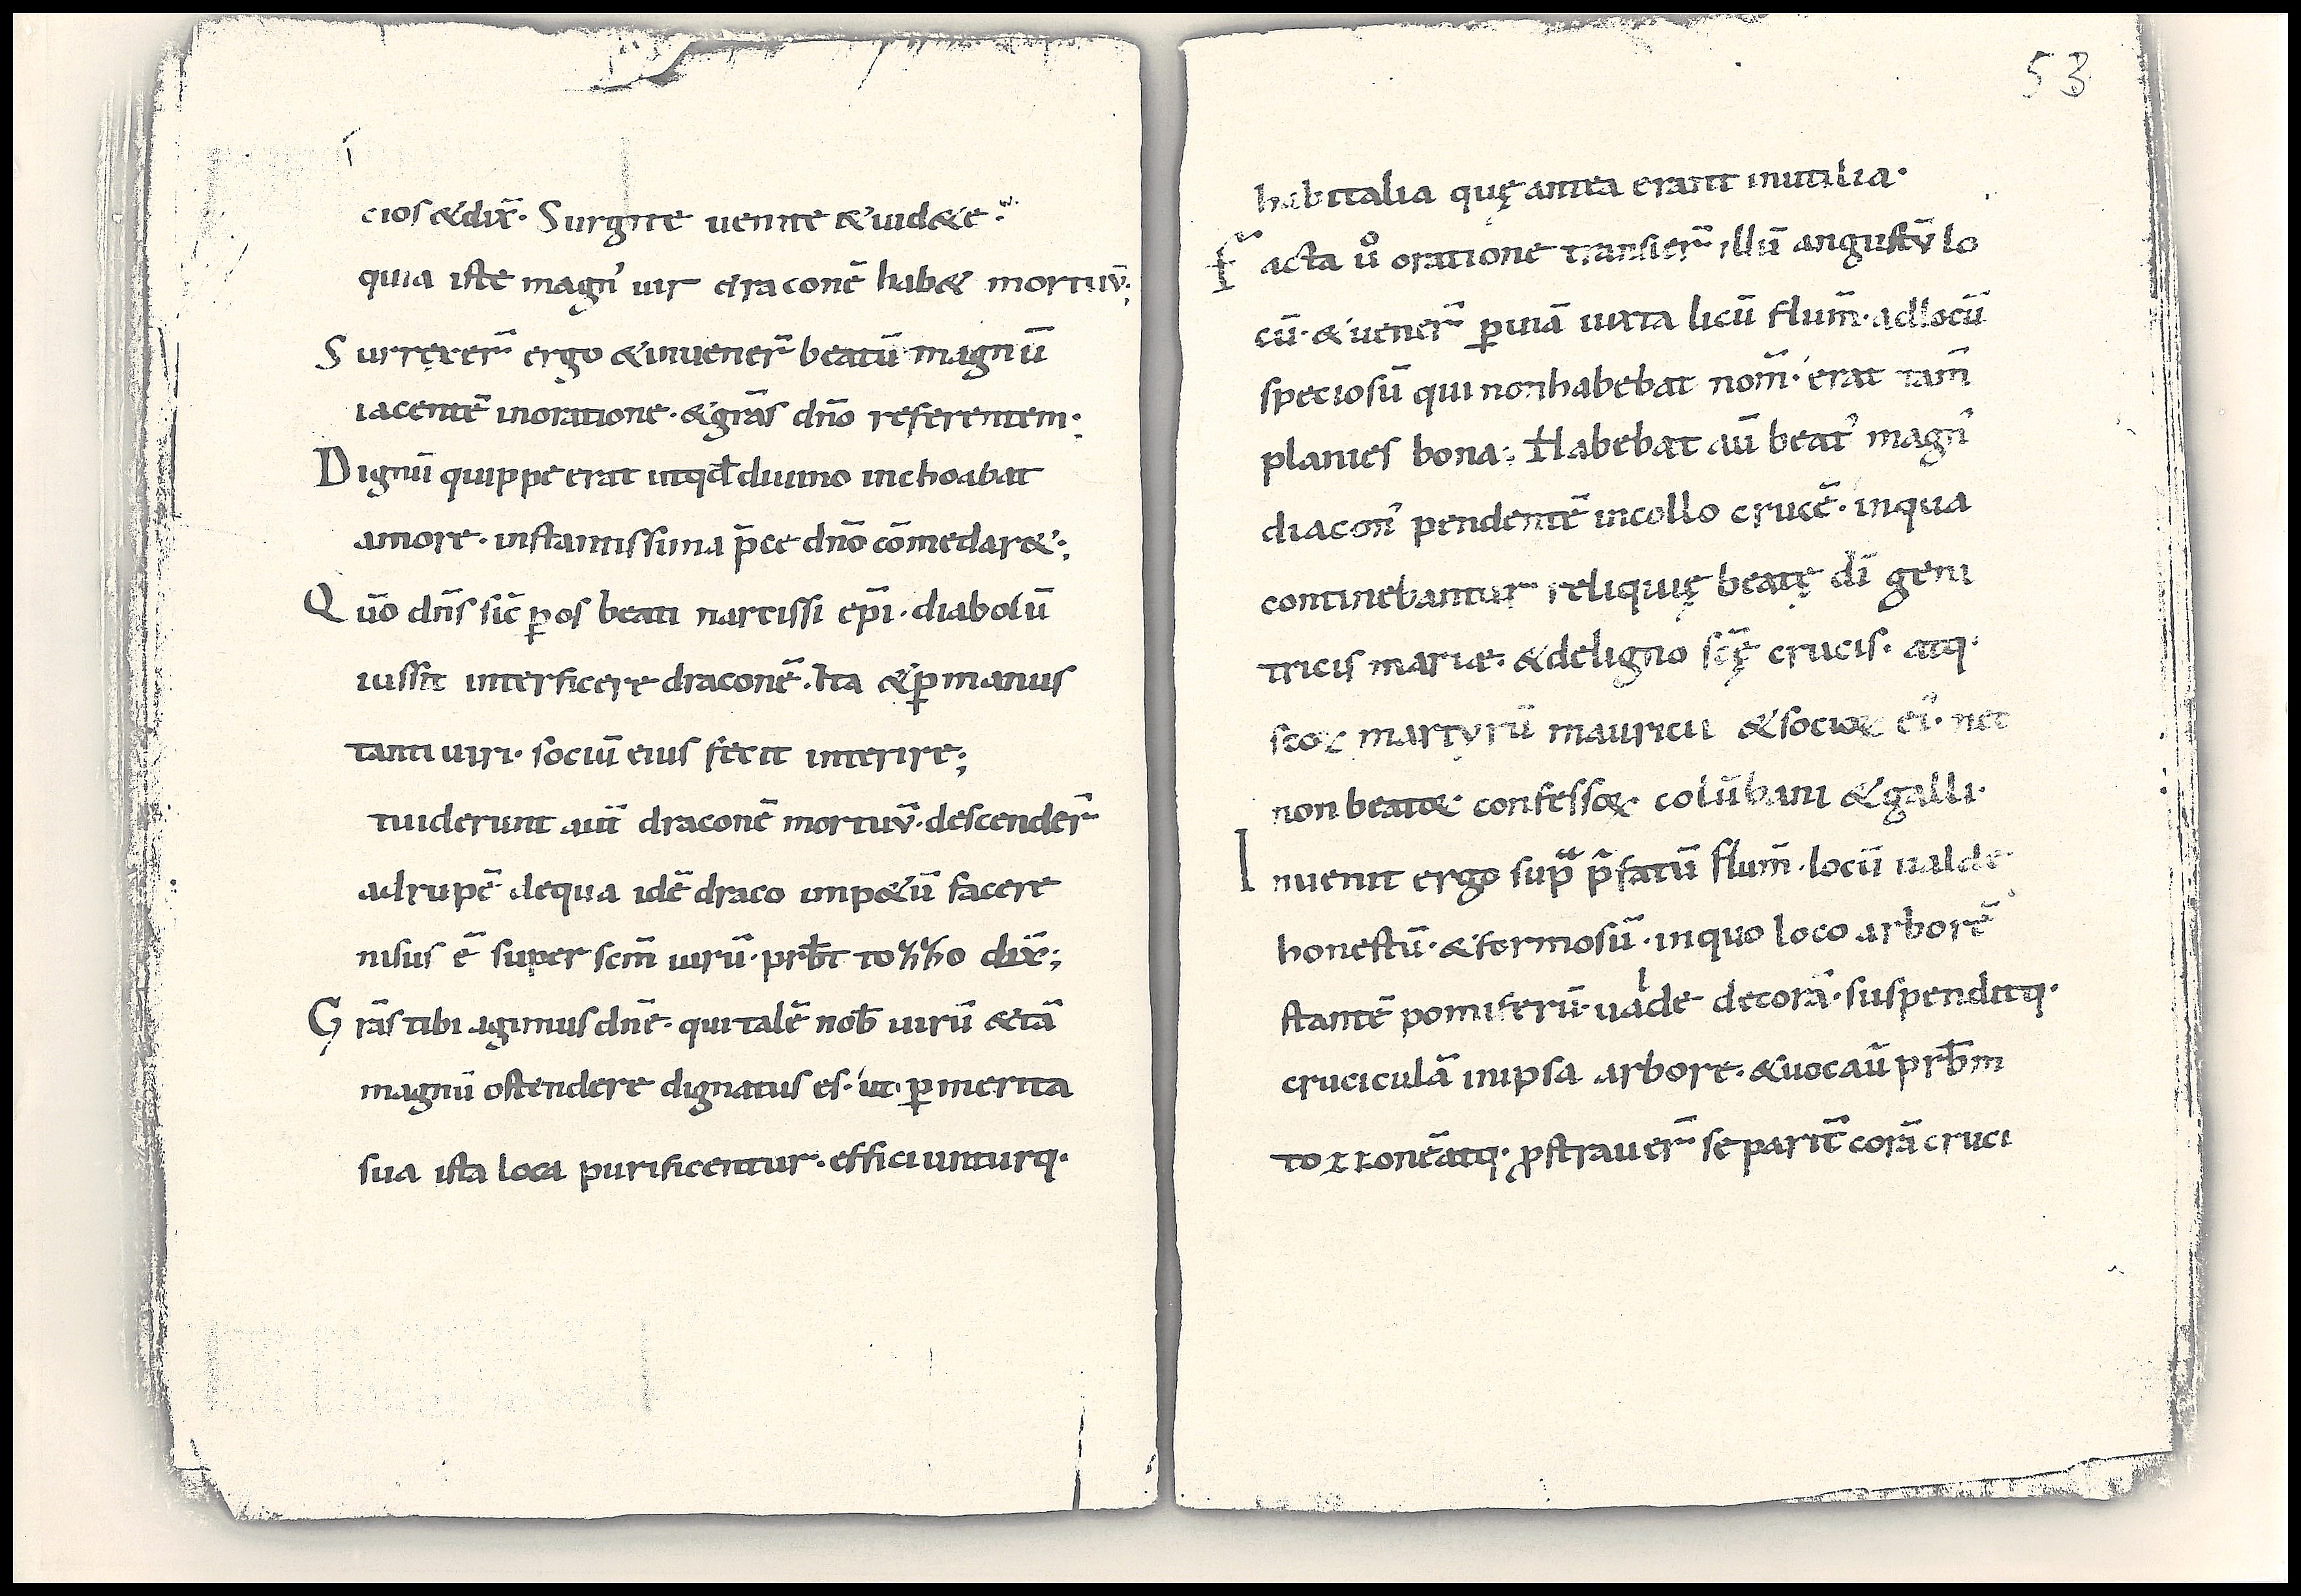 cios &dix̄· Surgite uenite &uid&e·
quia iste magn' uir draconē hab& mortuū·;
Surrexer̄ ergo &inuener̄ beatū magnū
iacentē inoratione· &grās dn̄o referentem·;
Dignū quippe erat utqđ diuino inchoabat
amore· instantissima p̄ce dn̄o cōmēdar&·;
Quō dn̄s sic̄ ꝑos beati narcissi ep̄i· diabolū
iussit interficere draconē· Ita &ꝑmanus
tanti uiri· sociū eius fecit interire;
tuiderunt aut̄ draconē mortuū· descender̄
adrupē dequa idē draco imp&ū facere
nisus ē super sc̄m uirū· prƀt to dix̄·;
Grās tibi agimus dn̄e· quitalē noƀ uirū &tā
magnū ostendere dignatus es· ut ꝑmerita
sua ista loca purificentur· efficiunturq·
53
habitalia quę antea erant inutilia·
Facta uº oratione transier̄ illū angustū lo
cū· &uener̄ ꝑuiā iuxta licū flum̄· adlocū
speciosū qui nonhabebat nom̄· erat tam̄
planies bona·; Habebat aū beat' magn'
diacon' pendentē incollo crucē· inqua
continebantur reliquię beatę dī geni
tricis marie· &deligno sc̄ę crucis· atq·
scoꝝ martyrū mauricii &socioꝝ ei'· nec
non beatoꝝ confessoꝝ colūbani &galli·
Inuenit ergo sup̄ p̄fatū flum̄· locū ualde
honestū· &formosū· inquo loco arborē
stantē pomiferū· ualde decorā· suspenditq·
cruciculā inipsa arbore· &uocaū prƀm
ꝓstrauer̄ se parit̄ corā cruci